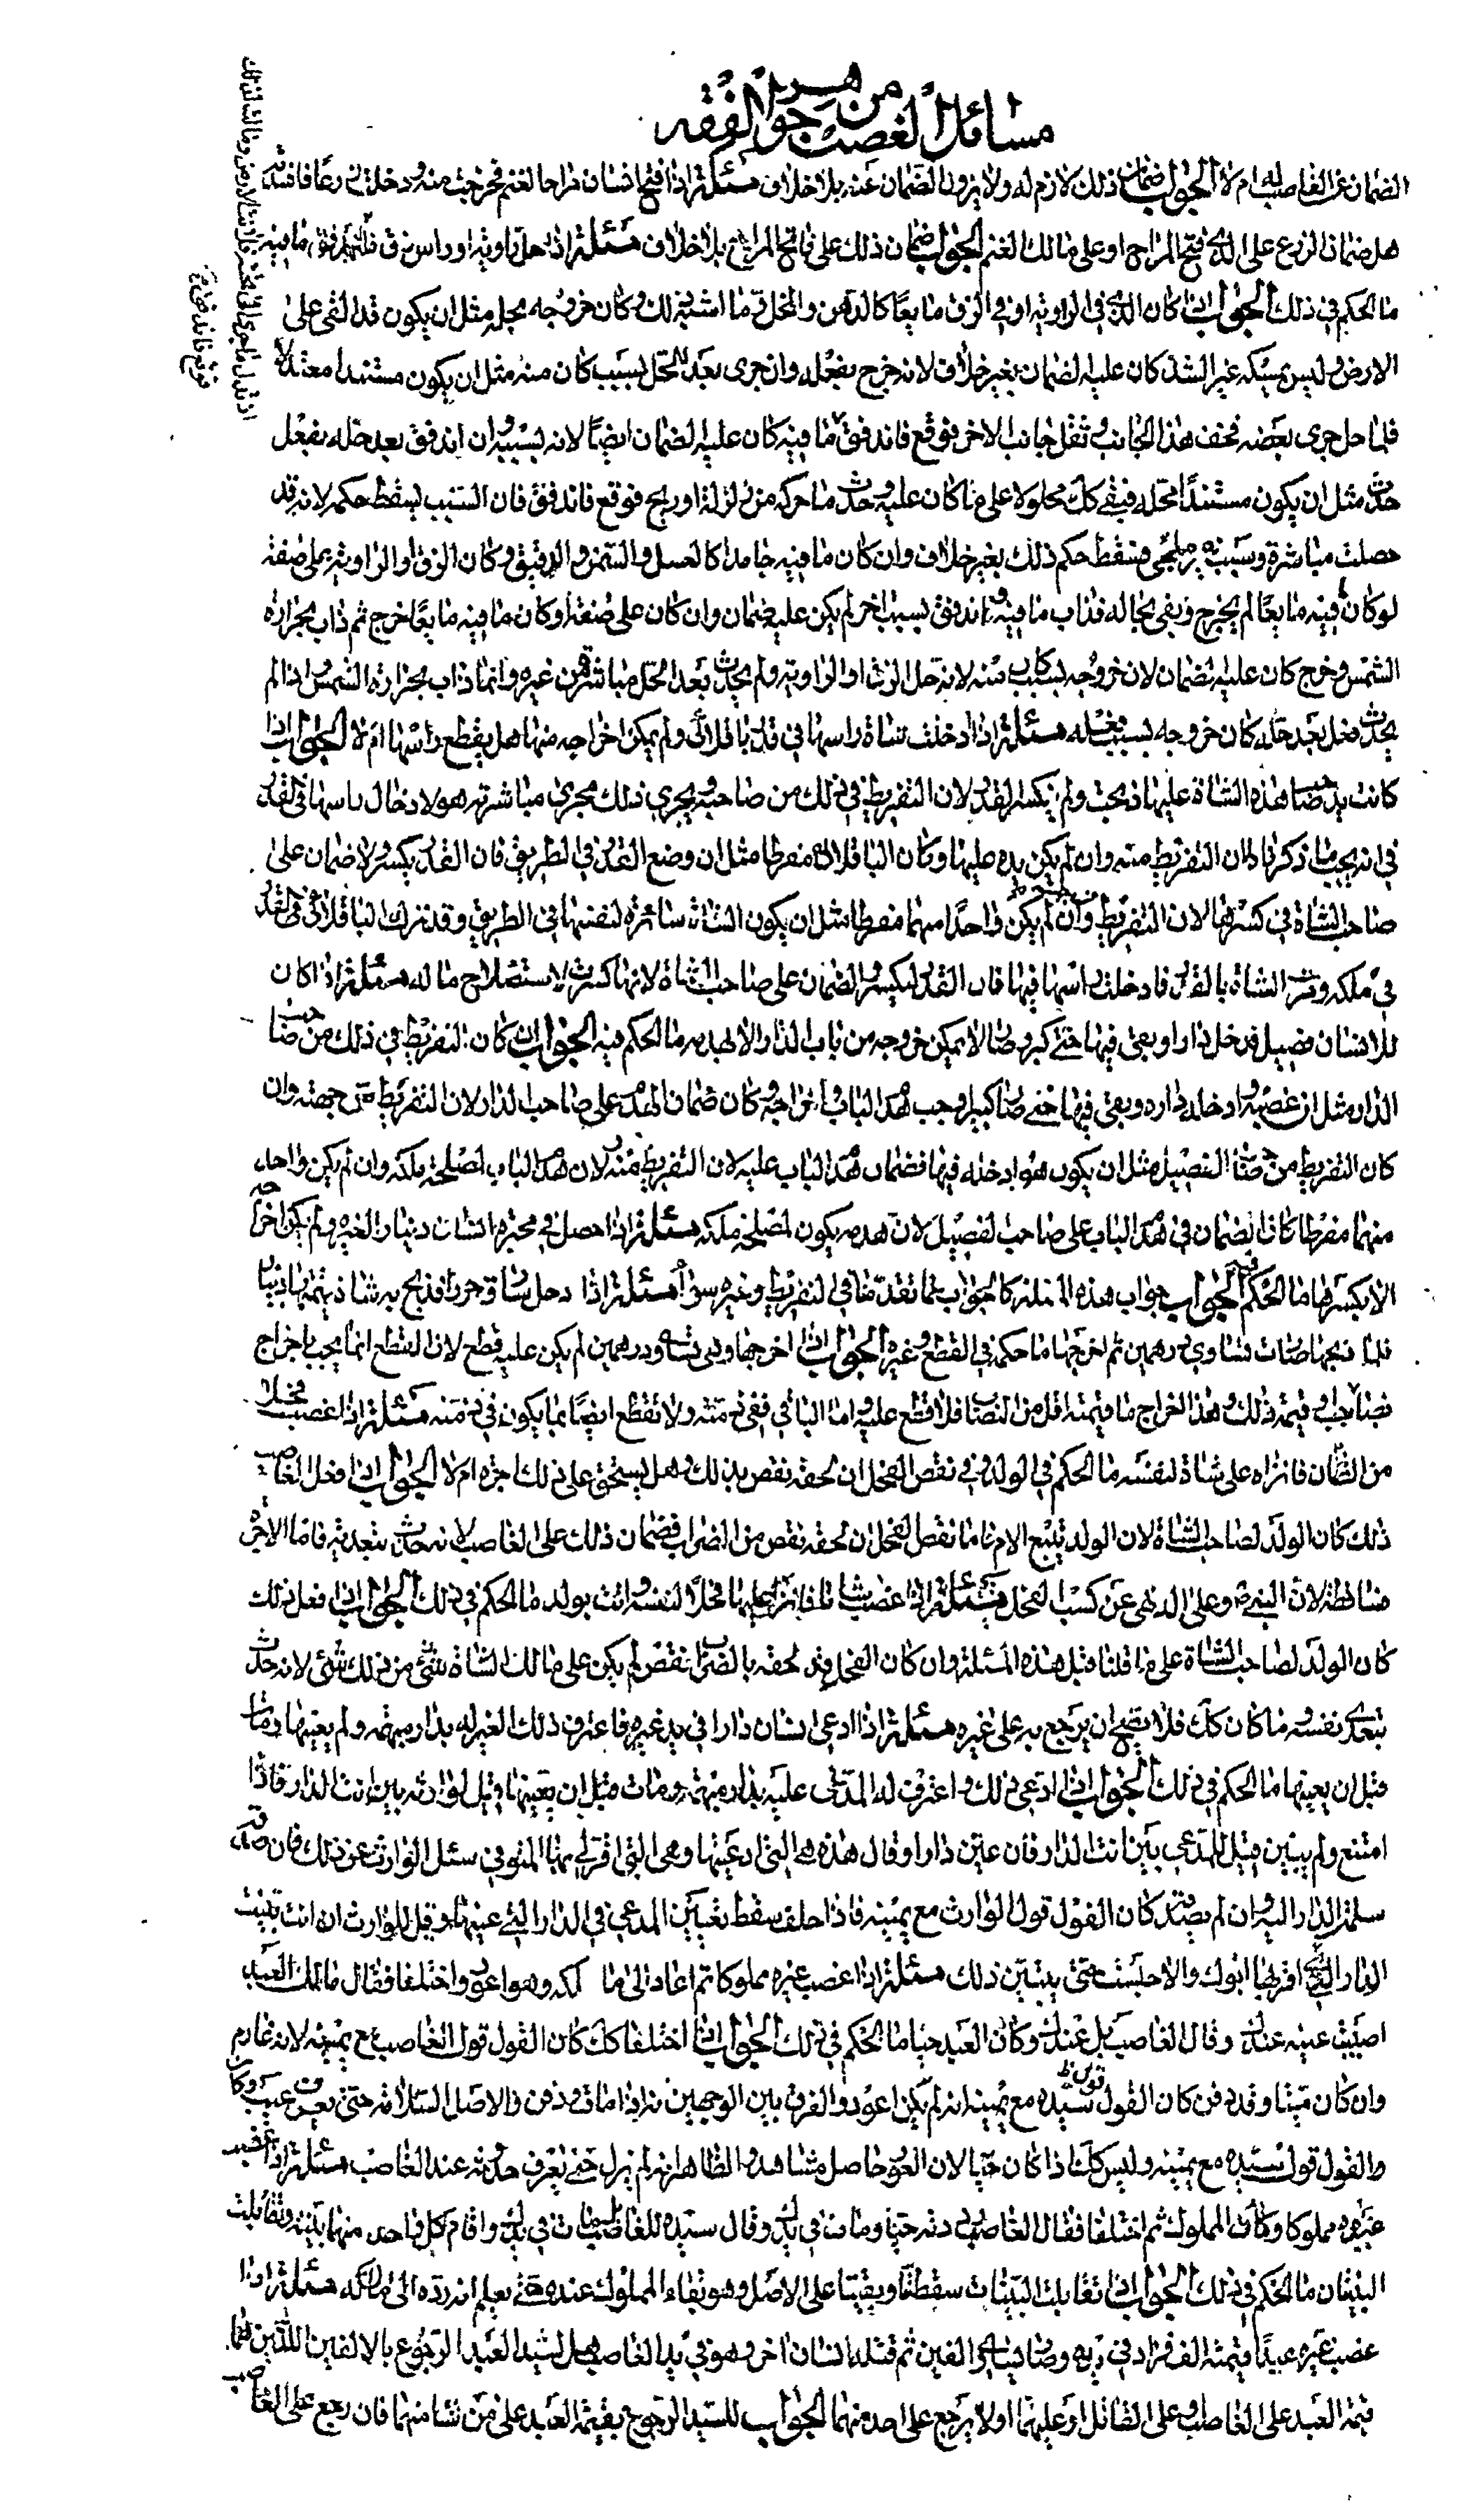 مسائل الغصب من جواهر الفقه
الضمان عن الغاصب له ام لا الجواب ضمان ذلك لازم له ولا يزول الضمان عنه بلا خلاف مسئلة اذا فتح انسان مراحا لغنم فخرجت منه ودخلت زرعا فافسدته
هل ضمان الزرع على الذى فتح المراح او على مالك الغنم الجواب ضمان ذلك على فاتح المراح بلا خلاف مسئلة اذا حل راوية او راس زق فاندفق ما فيه
ما الحكم في ذلك الجواب اذا كان الذى في الراوية او في الزق مايعا كالدهن والخل وما اشبه ذلك وكان خروجه بحله مثل ان يكون قد القى على
الارض وليس يمسكه غير الشد كان عليه الضمان بغير خلاف لانه خرج بفعله وان جرى بعد الحل بسبب كان منه مثل ان يكون مستندا معتدلا
فلما حل جرى بعضه فخف هذا الجانب وثقل جانب الاخر فوقع فاندفق ما فيه كان عليه الضمان ايضا لانه بسببه وان اندفق بعد حله بفعل
حدث مثل ان يكون مستندا فحله فبقى كك محلولا على ما كان عليه وحدث ما حركه من زلزلة او ريح فوقع فاندفق فان السبب يسقط حكمه لانه قد
حصلت مباشرة وسبب غير ملجئ فسقط حكم ذلك بغير خلاف وان كان ما فيه جامدا كالعسل والسمن والدقيق وكان الزق او الراوية على صفة
لو كان فيه مايعا لم يخرج وبقى بحاله فذاب ما فيه واندفق بسبب اخر لم يكن عليه ضمان وان كان على صفة لو كان ما فيه مايعا خرج ثم ذاب بحرارة
الشمس وخرج كان عليه ضمان لان خروجه بسبب كان منه لانه حل الزق او الراوية ولم يحدث بعد الحل مباشرة من غيره وانما ذاب بحرارة الشمس اذا لم
يحدث فعل بعد حله كان خروجه بسبب فعله مسئلة اذا ادخلت شاة راسها في قدر باقلائى ولم يمكن اخراجه منها هل يقطع راسها ام لا الجواب اذا
كانت يد صاحب هذه الشاة عليها ذبحت ولم يكسر القدر لان التفريط في ذلك من صاحبه ويجرى ذلك مجرى مباشرته هو لادخال راسها في القدر
في انه يجب ما ذكرناه لان التفريط منه وان لم يكن يده عليها وكان الباقلائى مفرطا مثل ان وضع القدر في الطريق فان القدر يكسر ولا ضمان على
صاحب الشاة في كسرها لان التفريط وان لم يكن واحدا منهما مفرطا مثل ان يكون الشاة سائرة لنفسها في الطريق وقد ترك الباقلائى القدر
في ملكه ومرت الشاة بالقدر فادخلت راسها فيها فان القدر يكسر والضمان على صاحب الشاة لانها كسرت لاستصلاح ماله مسئلة اذا كان
للانسان فصيل فدخل دارا وبقى فيها حتى كبر وصار لا يمكن خروجه من باب الدار الا بهدمه ما الحكم فيه الجواب ان كان التفريط في ذلك من صاحب
الدار مثل ان غصبه وادخله داره وبقى فيها حتى صار كبيرا وجب هدم الباب واخراجه وكان ضمان الهدم على صاحب الدار لان التفريط من جهته وان
كان التفريط من صاحب الفصيل مثل ان يكون هو ادخله فيها فضمان هدم الباب عليه لان التفريط منه لان هدم الباب لمصلحة ملكه وان لم يكن واحد
منهما مفرطا كان الضمان في هدم الباب على صاحب الفصيل لان هدمه يكون لمصلحة ملكه مسئلة اذا حصل في محبرة انسان دينار لغيره ولم يمكن اخراجه
الا بكسرها ما الحكم فيه الجواب جواب هذه المسئلة كالجواب عما تقدمها في التفريط وغيره سواء مسئلة اذا دخل سارق حرزا فذبح به شاة قيمتها دينار
فلما ذبحها صارت تساوى درهمين ثم اخرجها ما حكمه في القطع وغيره الجواب اذا اخرجها وهى تساوى درهمين لم يكن عليه قطع لان القطع انما يجب باخراج
نصاب او قيمة ذلك وهذا اخراج ما قيمته اقل من النصاب فلا قطع عليه واما الباقي ففى ذمته ولا تقطع ايضا بما يكون في ذمته مسئلة اذا غصب فحلا
من الضان فانزاه على شاة لنفسه ما الحكم في الولد وفي نقص الفحل ان لحقه نقص بذلك وهل يستحق على ذلك اجرة ام لا الجواب اذا فعل الغاصب
ذلك كان الولد لصاحب الشاة لان الولد يتبع الام فاما نقص الفحل ان لحقه نقص من الضراب فضمان ذلك على الغاصب لانه حدث بتعديه فاما الاجرة
فساقطة لان النبى صلى الله عليه واله نهى عن كسب الفحل مسئلة اذا غصب شاة فانزا عليها فحلا لنفسه واتت بولد ما الحكم في ذلك الجواب اذا فعل ذلك
كان الولد لصاحب الشاة على ما قلناه قبل هذه المسئلة وان كان الفحل قد لحقه بالضراب نقص لم يكن على مالك الشاة شئ من ذلك شئ لانه حدث
بتعدى نفسه وما كان كك فلا يصح ان يرجع به على غيره مسئلة اذا ادعى انسان دارا في يد غيره فاعترف ذلك الغير له بدار مبهمة ولم يعينها ومات
قبل ان يعينها ما الحكم في ذلك الجواب اذا ادعى ذلك واعترف له المدعى عليه بدار مبهمة ومات قبل ان يعينها قيل لوارثه بين انت الدار فاذا
امتنع ولم يبين قيل للمدعى بين انت الدار فان عين دارا وقال هذه هى التى ادعيتها وهى التى اقر لى بها المتوفى سئل الوارث عن ذلك فان صدقه
سلمت الدار اليه وان لم يصدقه كان القول قول الوارث مع يمينه فاذا حلف سقط تعيين المدعى في الدار التى عينها وقيل للوارث ان انت بينت
الدار التى اقر بها ابوك والا حبست حتى يتبين ذلك مسئلة اذا غصب غيره مملوكا ثم اعاده الى مالكه وهو اعور واختلفا فقال مالك العبد
اصيبت عينه عندك وقال الغاصب بل عندك وكان العبد حيا ما الحكم في ذلك الجواب اذا اختلفا كك كان القول قول الغاصب مع يمينه لانه غارم
وان كان ميتا وقد دفن كان القول قول سيده مع يمينه انه لم يكن اعور والفرق بين الوجهين انه اذا مات ودفن فالاصل السلامة حتى يعرف عيب وكان
القول قول سيده مع يمينه وليس كك اذا كان حيا لان العور حاصل مشاهد والظاهر انه لم يزل حتى يعرف حدوثه عند الغاصب مسئلة اذا غصب
غيره مملوكا وكان المملوك ثم اختلفا فقال الغاصب رددته حيا ومات في يدك وقال سيده للغاصب بل مات في يدك واقام كل واحد منهما بينة وتقابلت
البينتان ما الحكم في ذلك الجواب اذا تقابلت البينات سقطتا وبقيتا على الاصل وهو بقاء المملوك عنده حتى يعلم انه رده الى مالكه مسئلة اذا
غصب غيره عبدا قيمته الف فزاد في يده وصار يساوى الفين ثم قتله انسان اخر وهو في يد الغاصب هل لسيد العبد الرجوع بالالفين اللذين هما
قيمة العبد على الغاصب او على القاتل او عليهما او لا يرجع على احد منهما الجواب للسيد الرجوع بقيمة العبد على من شاء منهما فان رجع على الغاصب